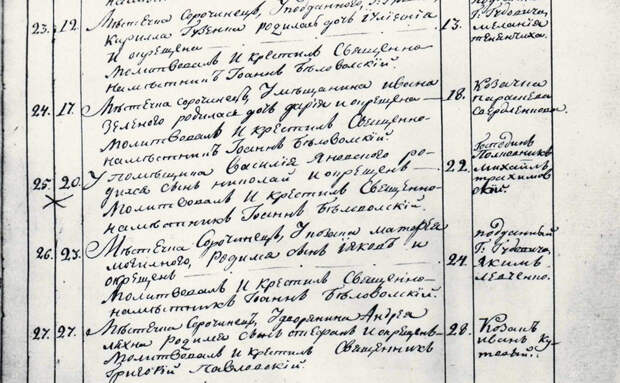 23. 12. Мѣстечка Сорочинецъ, У подданного, Г. 
Кирилла Гузенка родилась дочь
И окрещена
Молитвовалъ И крестилъ Священно
намѣстникъ Iоаннъ Бѣловолскiй.
13.
Г. Гудовича,
меланiя
24. 17. Мѣстечка сорочинецъ, У мѣщанина ивана
Зеленого родилась дочь дарiя и окрещена
Молитвовалъ И крестилъ Священно
намѣстникъ Iоаннъ Бѣловолскiй.
18.
Козачка
параскева
25. 20. У помѣщика Василiя Яновского ро
дился сынъ николай и окрещенъ
Молитвовалъ И крестилъ Священно
намѣстникъ Iоаннъ Бѣловолскiй.
22.
Господинъ
Полковникъ
михаилъ
трахимов
скiй.
26. 23. Мѣстечка Сорочинецъ, У
могилного, родился сынъ iяковъ и
окрещенъ
Молитвовалъ И крестилъ Священно
намѣстникъ Iоаннъ Бѣловолскiй.
24.
подданный
Г. Гудовича,
якимъ
27. 27. Мѣстечка Сорочинецъ, У дворянина Андрея
родился сынъ стефанъ И окрещенъ
Молитвовалъ И крестилъ Священникъ
григорiй Павловскiй.
28.
Козакъ
иванъ